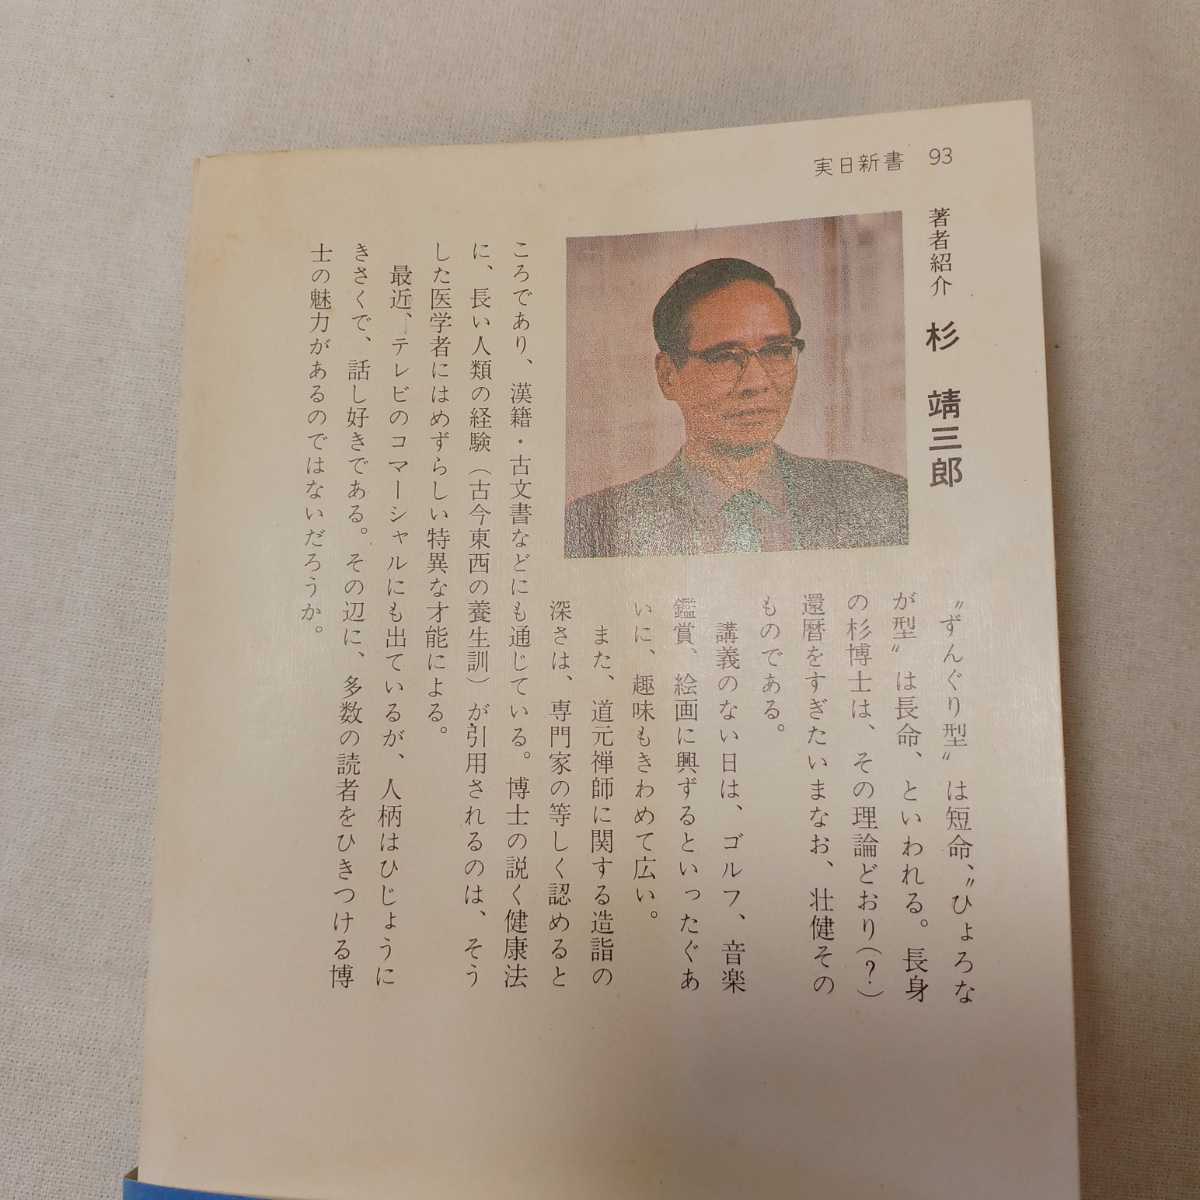 実日新書 93
著者紹介 杉 靖三郎
〝ずんぐり型〟は短命、〝ひょろな
が型〟は長命、といわれる。長身
の杉博士は、その理論どおり(?)
還暦をすぎたいまなお、壮健その
ものである。
講義のない日は、ゴルフ、音楽
鑑賞、絵画に興ずるといったぐあ
いに、趣味もきわめて広い。
また、道元禅師に関する造詣の
深さは、専門家の等しく認めると
ころであり、漢籍・古文書などにも通じている。博士の説く健康法
に、長い人類の経験(古今東西の養生訓)が引用されるのは、そう
した医学者にはめずらしい特異な才能による。
最近、テレビのコマーシャルにも出ているが、人柄はひじょうに
きさくで、話し好きである。その辺に、多数の読者をひきつける博
士の魅力があるのではないだろうか。